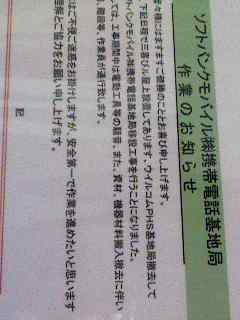 ソフトバンクモバイル㈱携帯電話基地局
作業のお知らせ
客様にはますますご清勝のこととお喜び申し上げます。
下記日程で三喜ビル屋上設置してあります、ウイルコムPHS基地局撤去して
フトバンクモバイル㈱携帯電話基地局移設工事を行うことになりました。
ては、工事期間中は電動工具等の騒音、また、資材、機器材料搬入撤去に伴い
、階段等、作業員が通行致します。
はご不便ご迷惑をお掛けしますが、安全第一で作業を進めたいと思います
理解とご協力をお願い申し上げます。
記